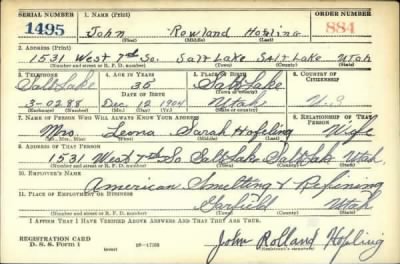 SERIAL NUMBER 1. NAME (Print) ORDER NUMBER
1495 John Rowland Hopling 884
(First) (Middle) (Last)
2. ADDRESS (Print)
1531 West 7th So. Salt Lake Salt Lake Utah
(Number and street or R. F. D. number) (Town) (County) (State)
3. TELEPHONE 4. AGE IN YEARS 5. PLACE OF BIRTH 6. COUNTRY OF CITIZENSHIP
Salt Lake 35 Salt Lake
DATE OF BIRTH (Town or county)
3-0288 Dec 12 1904 Utah U.S.
(Exchange) (Number) (Mo.) (Day) (Yr.) (State or country)
7. NAME OF PERSON WHO WILL ALWAYS KNOW YOUR ADDRESS 8. RELATIONSHIP OF THAT PERSON
Mrs. Leona Sarah Hopling Wife
(Mr., Mrs., Miss) (First) (Middle) (Last)
9. ADDRESS OF THAT PERSON
1531 West 7th So Salt Lake Salt Lake Utah
(Number and street or R. F. D. number) (Town) (County) (State)
10. EMPLOYER'S NAME
American Smelting & Refining
11. PLACE OF EMPLOYMENT OR BUSINESS
Garfield Utah
(Number and street or R. F. D. number) (Town) (County) (State)
I AFFIRM THAT I HAVE VERIFIED ABOVE ANSWERS AND THAT THEY ARE TRUE.
REGISTRATION CARD
D. S. S. Form 1 (over) 16-17105 John Rolland Hopling
(Registrant's signature)